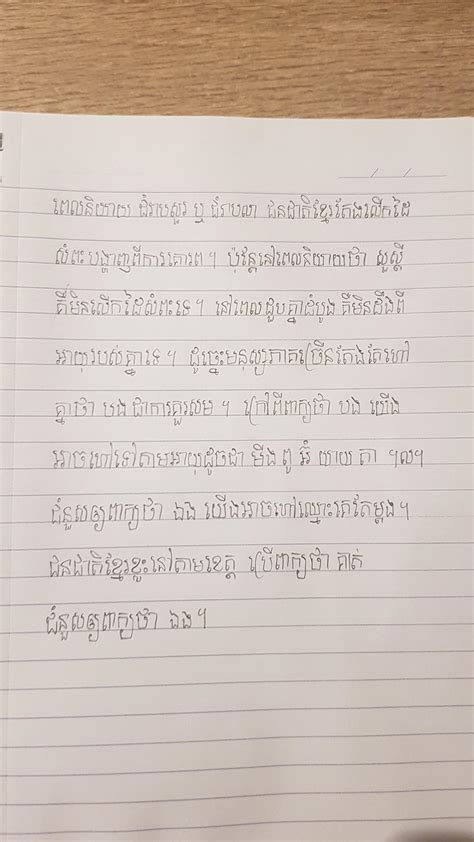 ពេលនិយាយ ជំរាបសួរ ឬ ជំរាបលា ជនជាតិខ្មែរតែងលើកដៃ
សំពះ បង្ហាញពីការគោរព ។ ប៉ុន្តែនៅពេលនិយាយថា សួស្តី
គឺមិនលើកដៃសំពះទេ ។ នៅពេលជួបគ្នាដំបូង គឺមិនដឹងពី
អាយុរបស់គ្នាទេ ។ ដូច្នេះមនុស្សភាគច្រើនតែងតែហៅ
គ្នាថា បង ជាការគួរសម ។ ក្រៅពីពាក្យថា បង យើង
អាចហៅទៅតាមអាយុដូចជា មីង ពូ អ៊ំ យាយ តា ។ល។
ជំនួសឲ្យពាក្យថា ឯង យើងអាចហៅឈ្មោះគេតែម្តង ។
ជនជាតិខ្មែរខ្លះនៅតាមខេត្ត ប្រើពាក្យថា គាត់
ជំនួសឲ្យពាក្យថា ឯង ។